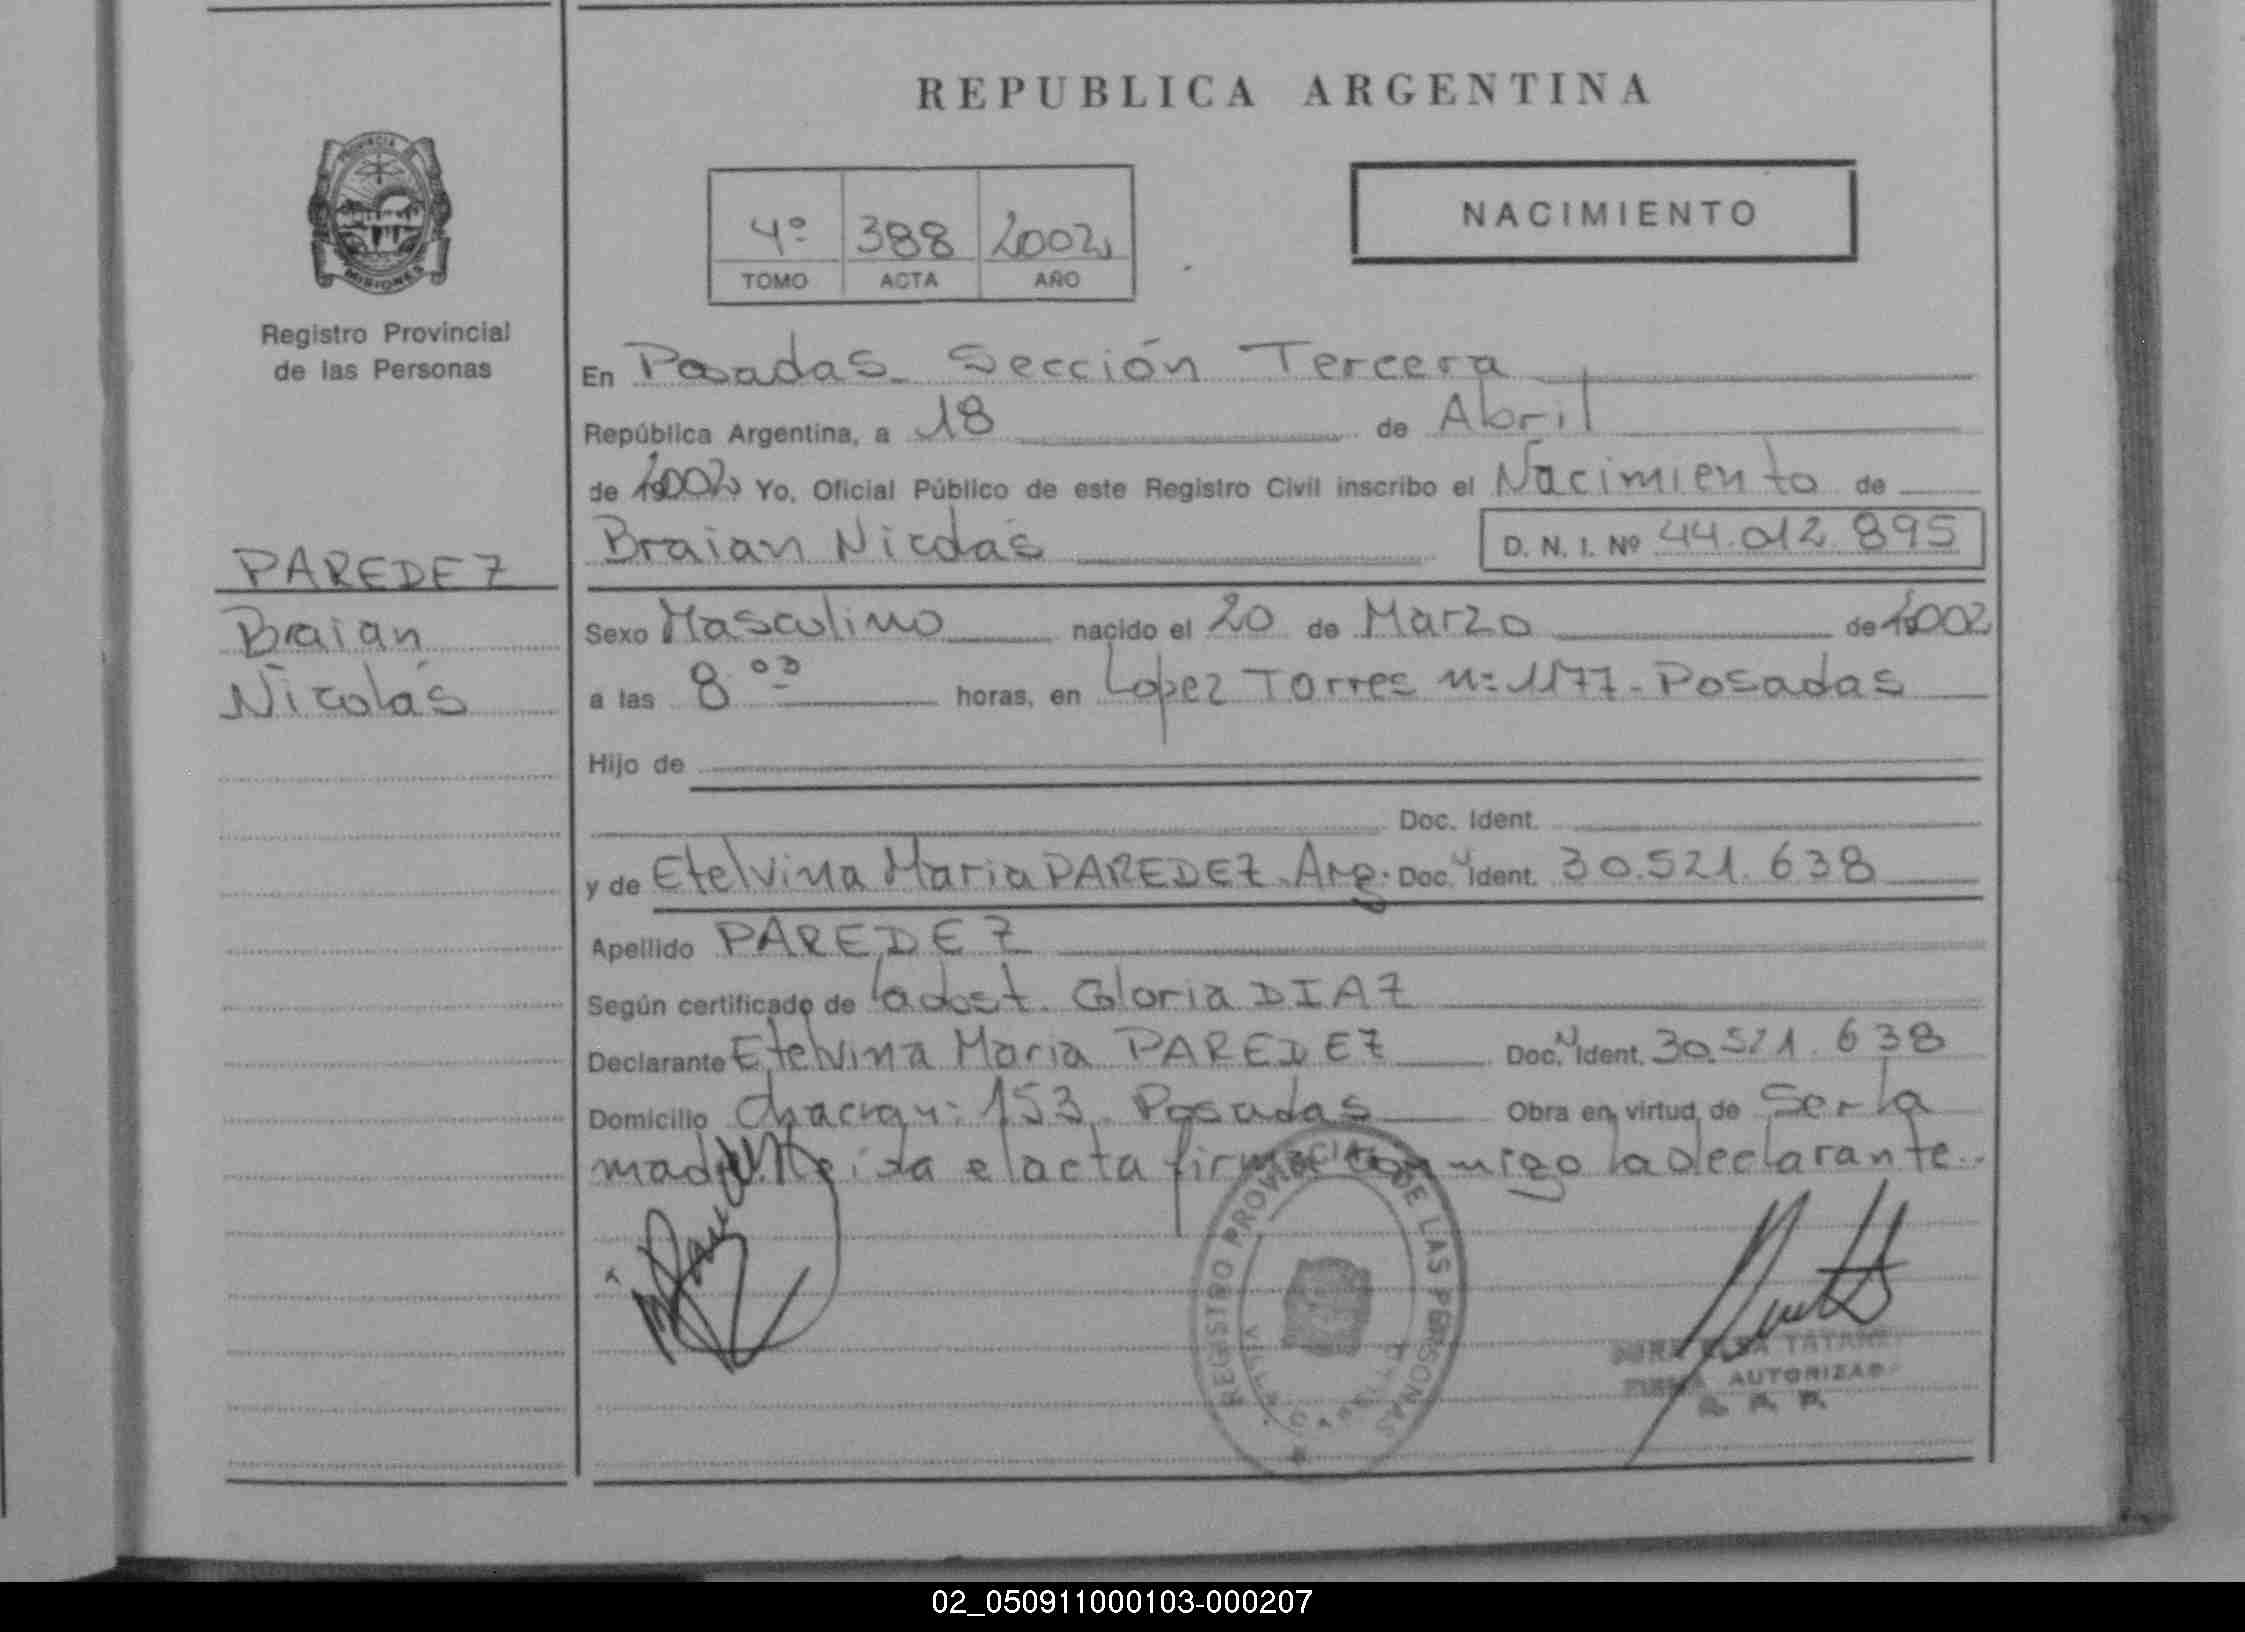 REPUBLICA ARGENTINA
PROVINCIA DE
MISIONES
4º 388 2002
TOMO ACTA AÑO
NACIMIENTO
Registro Provincial
de las Personas
En Posadas Sección Tercera
República Argentina, a 18 de Abril
de 2002 Yo, Oficial Público de este Registro Civil inscribo el Nacimiento de
Braian Nicolás D. N. I. Nº 44.012.895
PAREDEZ
Braian
Nicolás
Sexo Masculino nacido el 20 de Marzo de 2002
a las 8 00 horas, en Lopez Torres nº 1177 - Posadas
Hijo de
Doc. Ident.
y de Etelvina Maria PAREDEZ. Arg. Doc. N Ident. 30.521.638
Apellido PAREDEZ
Según certificado de la obst. Gloria DIAZ
Declarante Etelvina Maria PAREDEZ Doc. N Ident. 30.521.638
Domicilio Chacra nº 153. Posadas Obra en virtud de Ser la
madre. Leída el acta firma conmigo la declarante.
REGISTRO PROVINCIAL DE LAS PERSONAS
AUTORIZAD
02_050911000103-000207